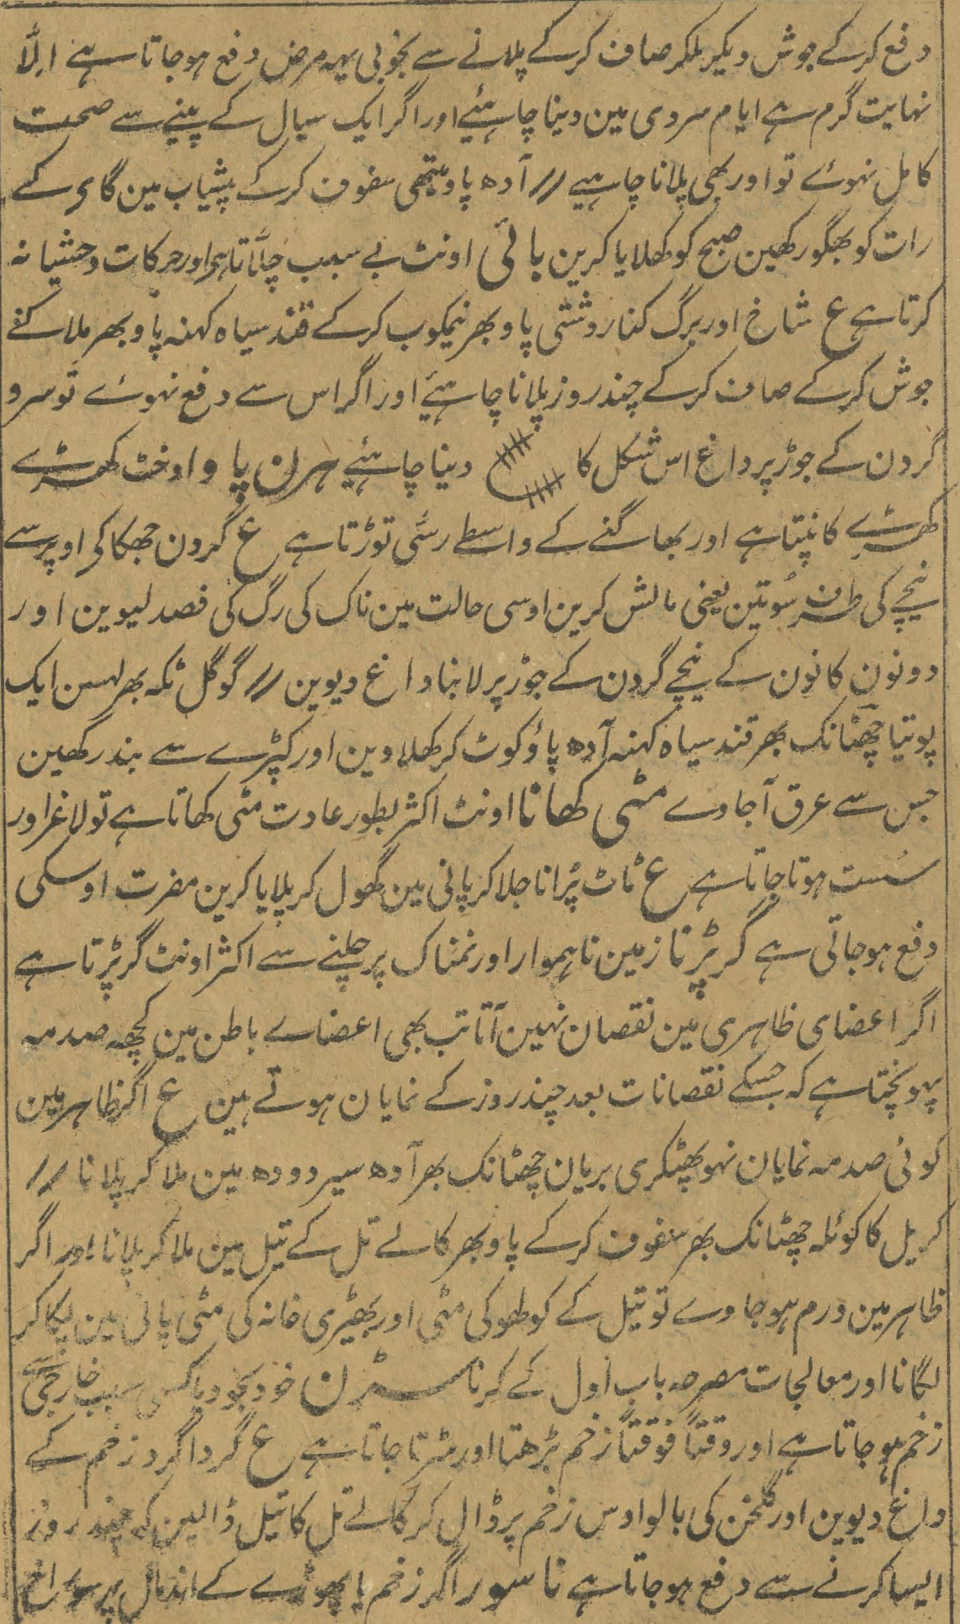 دفع کرکے جوش دیکر ملکر صاف کرکے پلانے سے بخوبی یہہ مرض دفع ہوجاتا ہے الّا
نہایت گرم ہے ایام سردی مین دینا چاہئیے اور اگر ایک سیال کے پینے سے صحت
کامل نہوئے تو اور بھی پلانا چاہیے // آدھ پاو میتھی سفوف کرکے پیشاب مین گای کے
رات کو بھگو رکھین صبح کو کھلایا کرین بائی اونٹ بے سبب چلّاتا ہی اور حرکات وحشیانہ
کرتا ہے ع شاخ اور برگ کنار دشتی پاو بھر نیمکوب کرکے قند سیاہ کہنہ پاو بھر ملا کے
جوش کرکے صاف کرکے چند روز پلانا چاہئیے اور اگر اس سے دفع نہوئے تو سر و
گردن کے جوڑ پر داغ اس شکل کا دینا چاہئیے ہرن پاو اونٹ کھڑے
کھڑے کانپتا ہے اور بھاگنے کے واسطے رسّی توڑتا ہے ع گردن جھکا کی اوپر سے
نیچے کی طرف سُوتین یعنی مالش کرین اوسی حالت مین ناک کی رگ کی فصد لیوین اور
دونون کانون کے نیچے گردن کے جوڑ پر لانبا داغ دیوین // گوگل ٹکہ بھر لہسن ایک
پوتیا چھٹانک بھر قند سیاہ کہنہ آدھ پاؤ کوٹ کر کھلاوین اور کپڑے سے بند رکھین
جس سے عرق آجاوے مٹی کھانا اونٹ اکثر بطور عادت مٹی کھاتا ہے تو لاغر اور
سست ہوتا جاتا ہے ع ٹاٹ پُرانا جلا کر پانی مین گھول کر پلایا کرین مضرت اوسکی
دفع ہوجاتی ہے گر پڑنا زمین ناہموار اور نمناک پر چلنے سے اکثر اونٹ گر پڑتا ہے
اگر اعضای ظاہری مین نقصان نہین آتا تب بھی اعضاے باطن مین کچھہ صدمہ
پہونچتا ہے کہ جسکے نقصانات بعد چند روز کے نمایان ہوتے ہین ع اگر ظاہر مین
کوئی صدمہ نمایان نہو پھٹکری بریان چھٹانک بھر آدھ سیر دودھ مین ملا کر پلانا //
کریل کا کوئلہ چھٹانک بھر سفوف کرکے پاو بھر کالے تل کے تیل مین ملا کر پلانا اور اگر
ظاہر مین ورم ہوجاوے تو تیل کے کولھو کی مٹی اور بھٹیری خانہ کی مٹی پانی مین پکا کر
لگانا اور معالجات مصرحہ باب اول کے کرنا سڑن خود بخود یا کسی سبب خارجی سے
زخم ہوجاتا ہے اور وقتاً فوقتاً زخم بڑھتا اور سڑتا جاتا ہے ع گردا گرد زخم کے
داغ دیوین اور گلخن کی بالو اوس زخم پر ڈال کر کالے تل کا تیل ڈالین کہ چند روز
ایسا کرنے سے دفع ہوجاتا ہے ناسور اگر زخم یا پھوڑے کے اندمال پر سوراخ